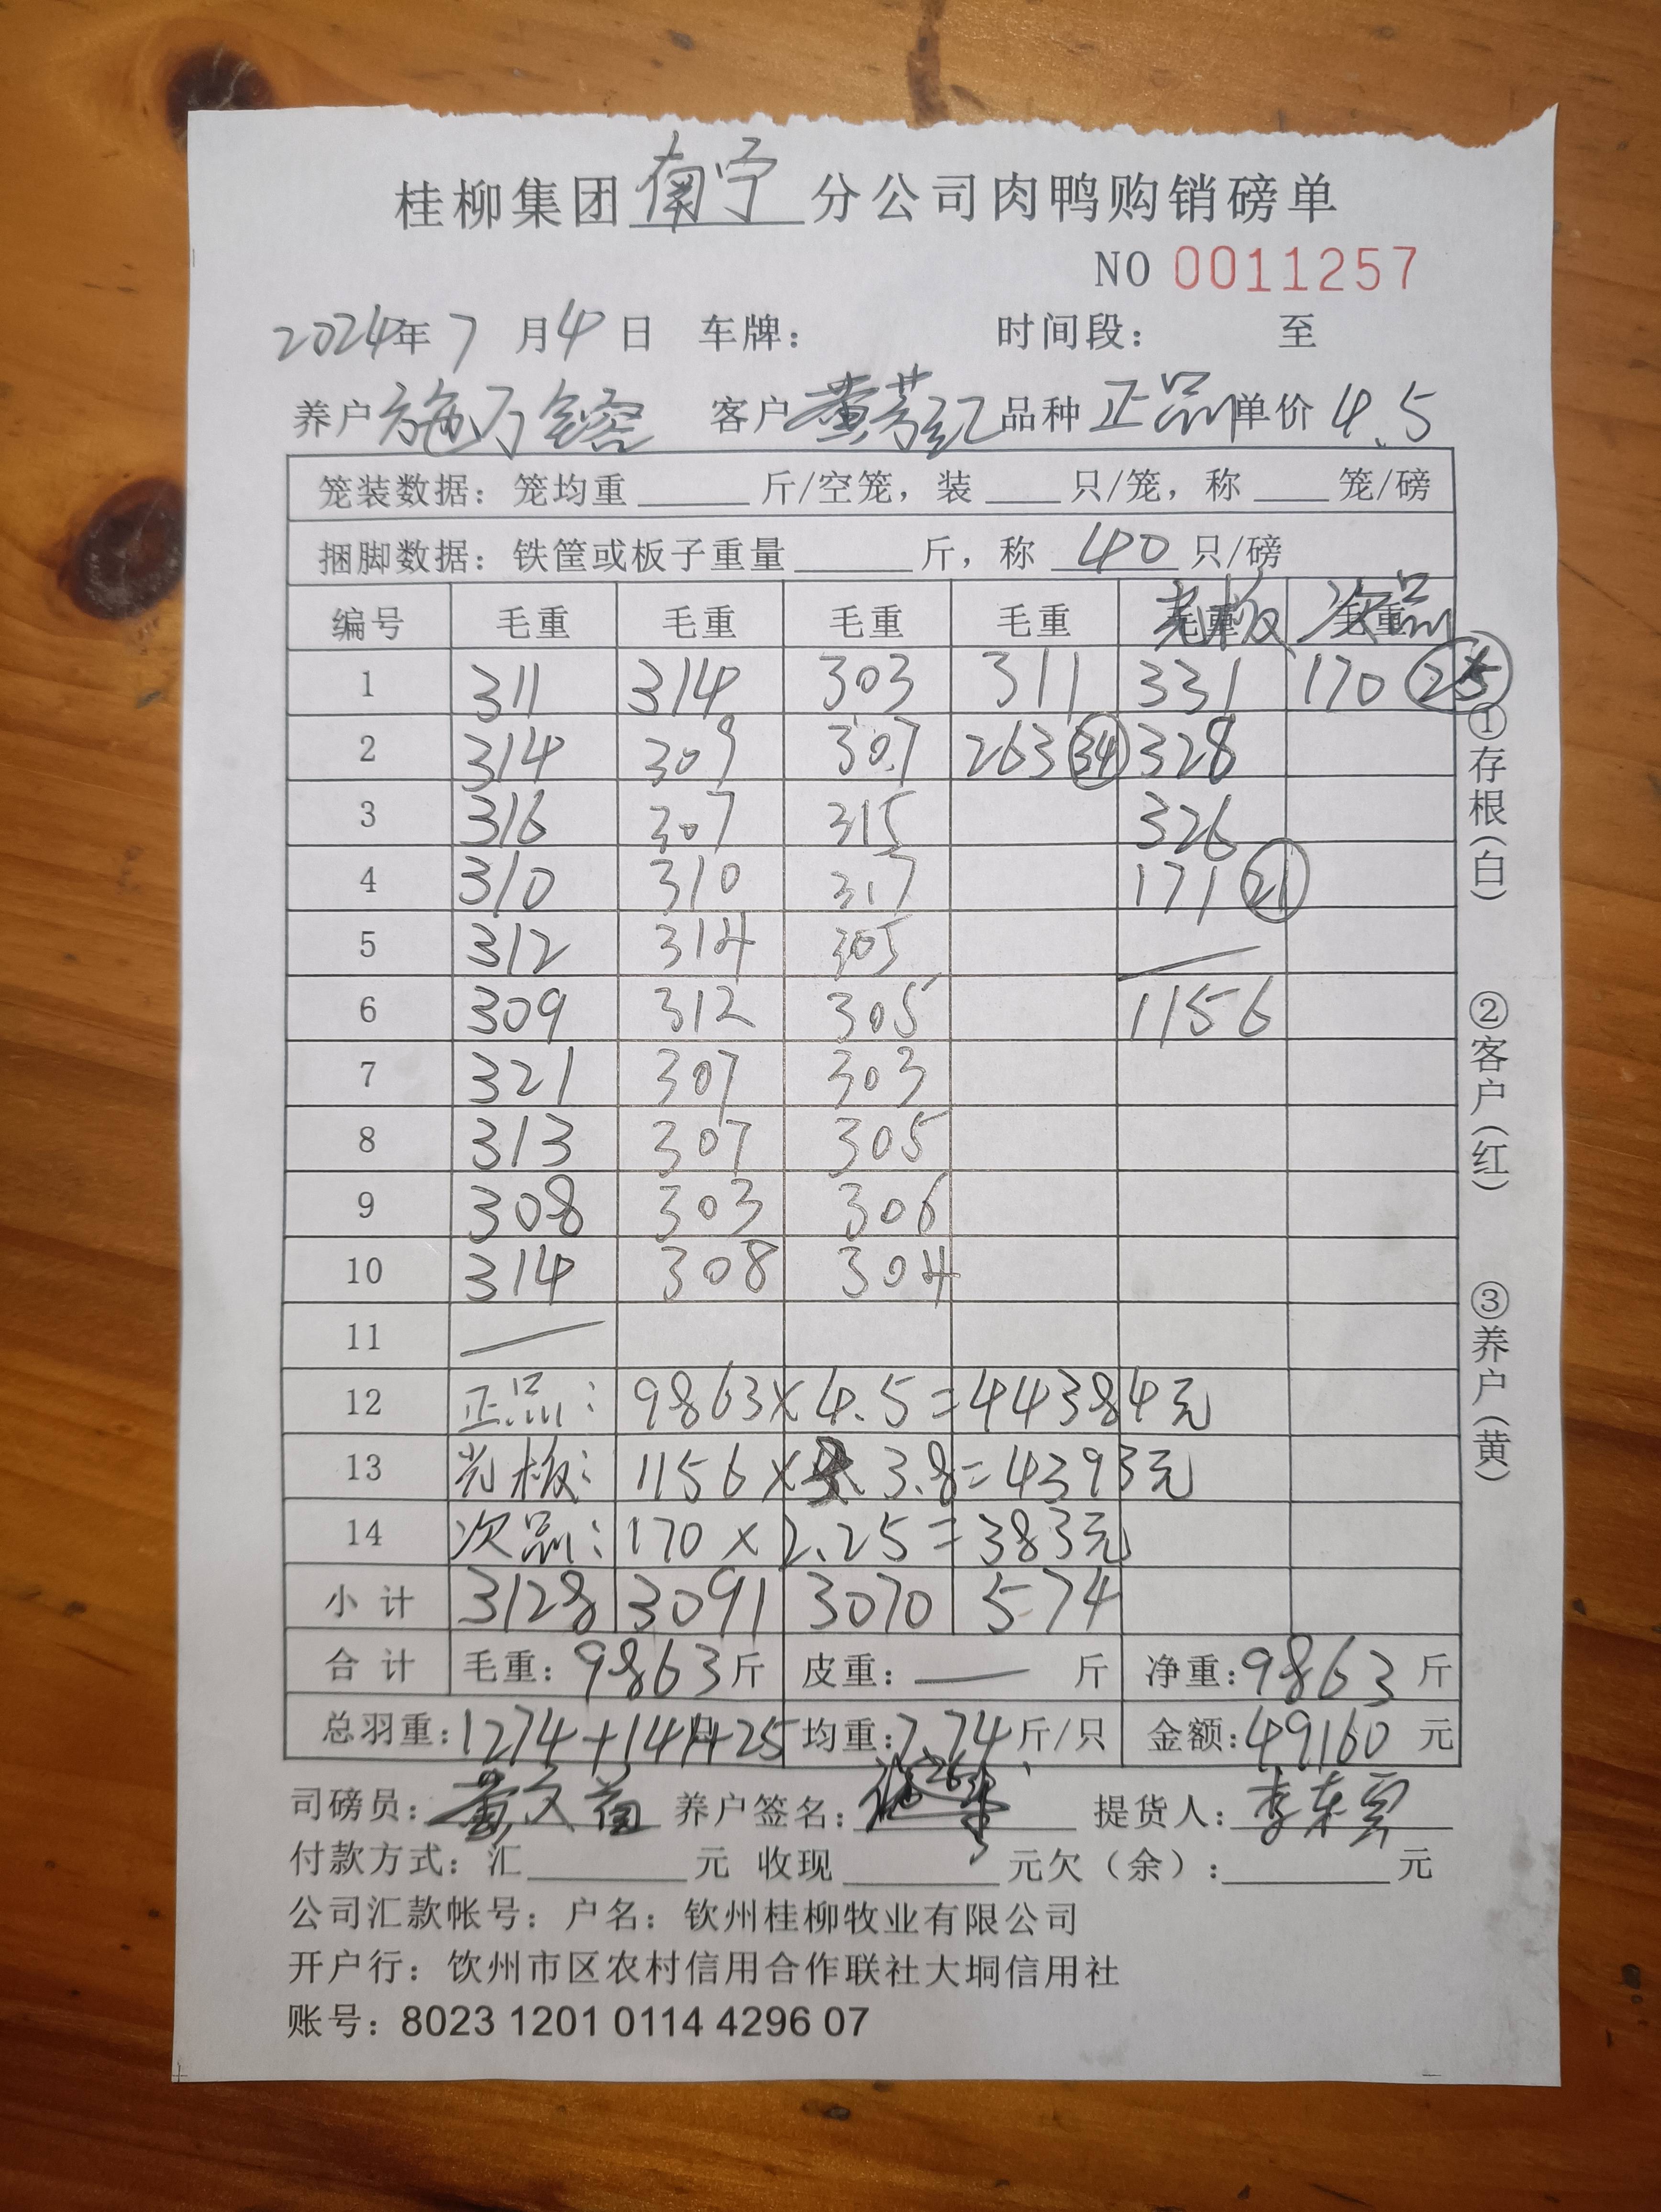 桂柳集团南宁分公司肉鸭购销磅单
NO 0011257
2024年7月4日 车牌： 时间段： 至
养户施万 客户黄芳红品种正品单价4.5
笼装数据：笼均重 斤/空笼，装 只/笼，称 笼/磅
捆脚数据：铁筐或板子重量 斤，称 40 只/磅
编号 毛重 毛重 毛重 毛重 光板 次品
1 311 314 303 311 331 170 25
2 314 309 307 263 34 328
3 316 307 315 326
4 310 310 317 171 21
5 312 314 305
6 309 312 305 1156
7 321 307 303
8 313 307 305
9 308 303 306
10 314 308 304
11
12 正品：9863×4.5=44384元
13 光板：1156×3.8=4393元
14 次品：170×2.25=383元
小计 3128 3091 3070 574
合计 毛重：9863斤 皮重：— 斤 净重：9863斤
总羽重：1274+141+25 均重：7.74斤/只 金额：49160元
司磅员：黄文 养户签名： 提货人：李东
付款方式：汇 元 收现 元欠（余）： 元
公司汇款帐号：户名：钦州桂柳牧业有限公司
开户行：饮州市区农村信用合作联社大垌信用社
账号：8023 1201 0114 4296 07
①存根（白）
②客户（红）
③养户（黄）